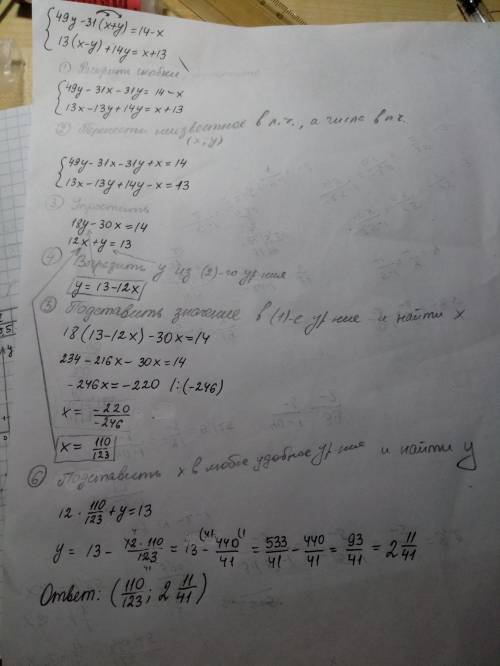 49y-31(x+y)=14-x
13(x-y)+14y=x+13
① Раскрыть скобки
49y-31x-31y=14-x
13x-13y+14y=x+13
② Перенести неизвестное в л.ч., а числа в п.ч.
(x,y)
49y-31x-31y+x=14
13x-13y+14y-x=13
③ Упростить
18y-30x=14
12x+y=13
④ Выразить y из (2)-го ур-ния
y=13-12x
⑤ Подставить значение в (1)-е ур-ние и найти x
18(13-12x)-30x=14
234-216x-30x=14
-246x=-220 /:(-246)
x= -220/-246
x= 110/123
⑥ Подставить x в любое удобное ур-ние и найти y
12·110/123+y=13
y= 13- 12·110/123 = 13- 440/41 = 533/41 - 440/41 = 93/41 = 2 11/41
Ответ: (110/123; 2 11/41)